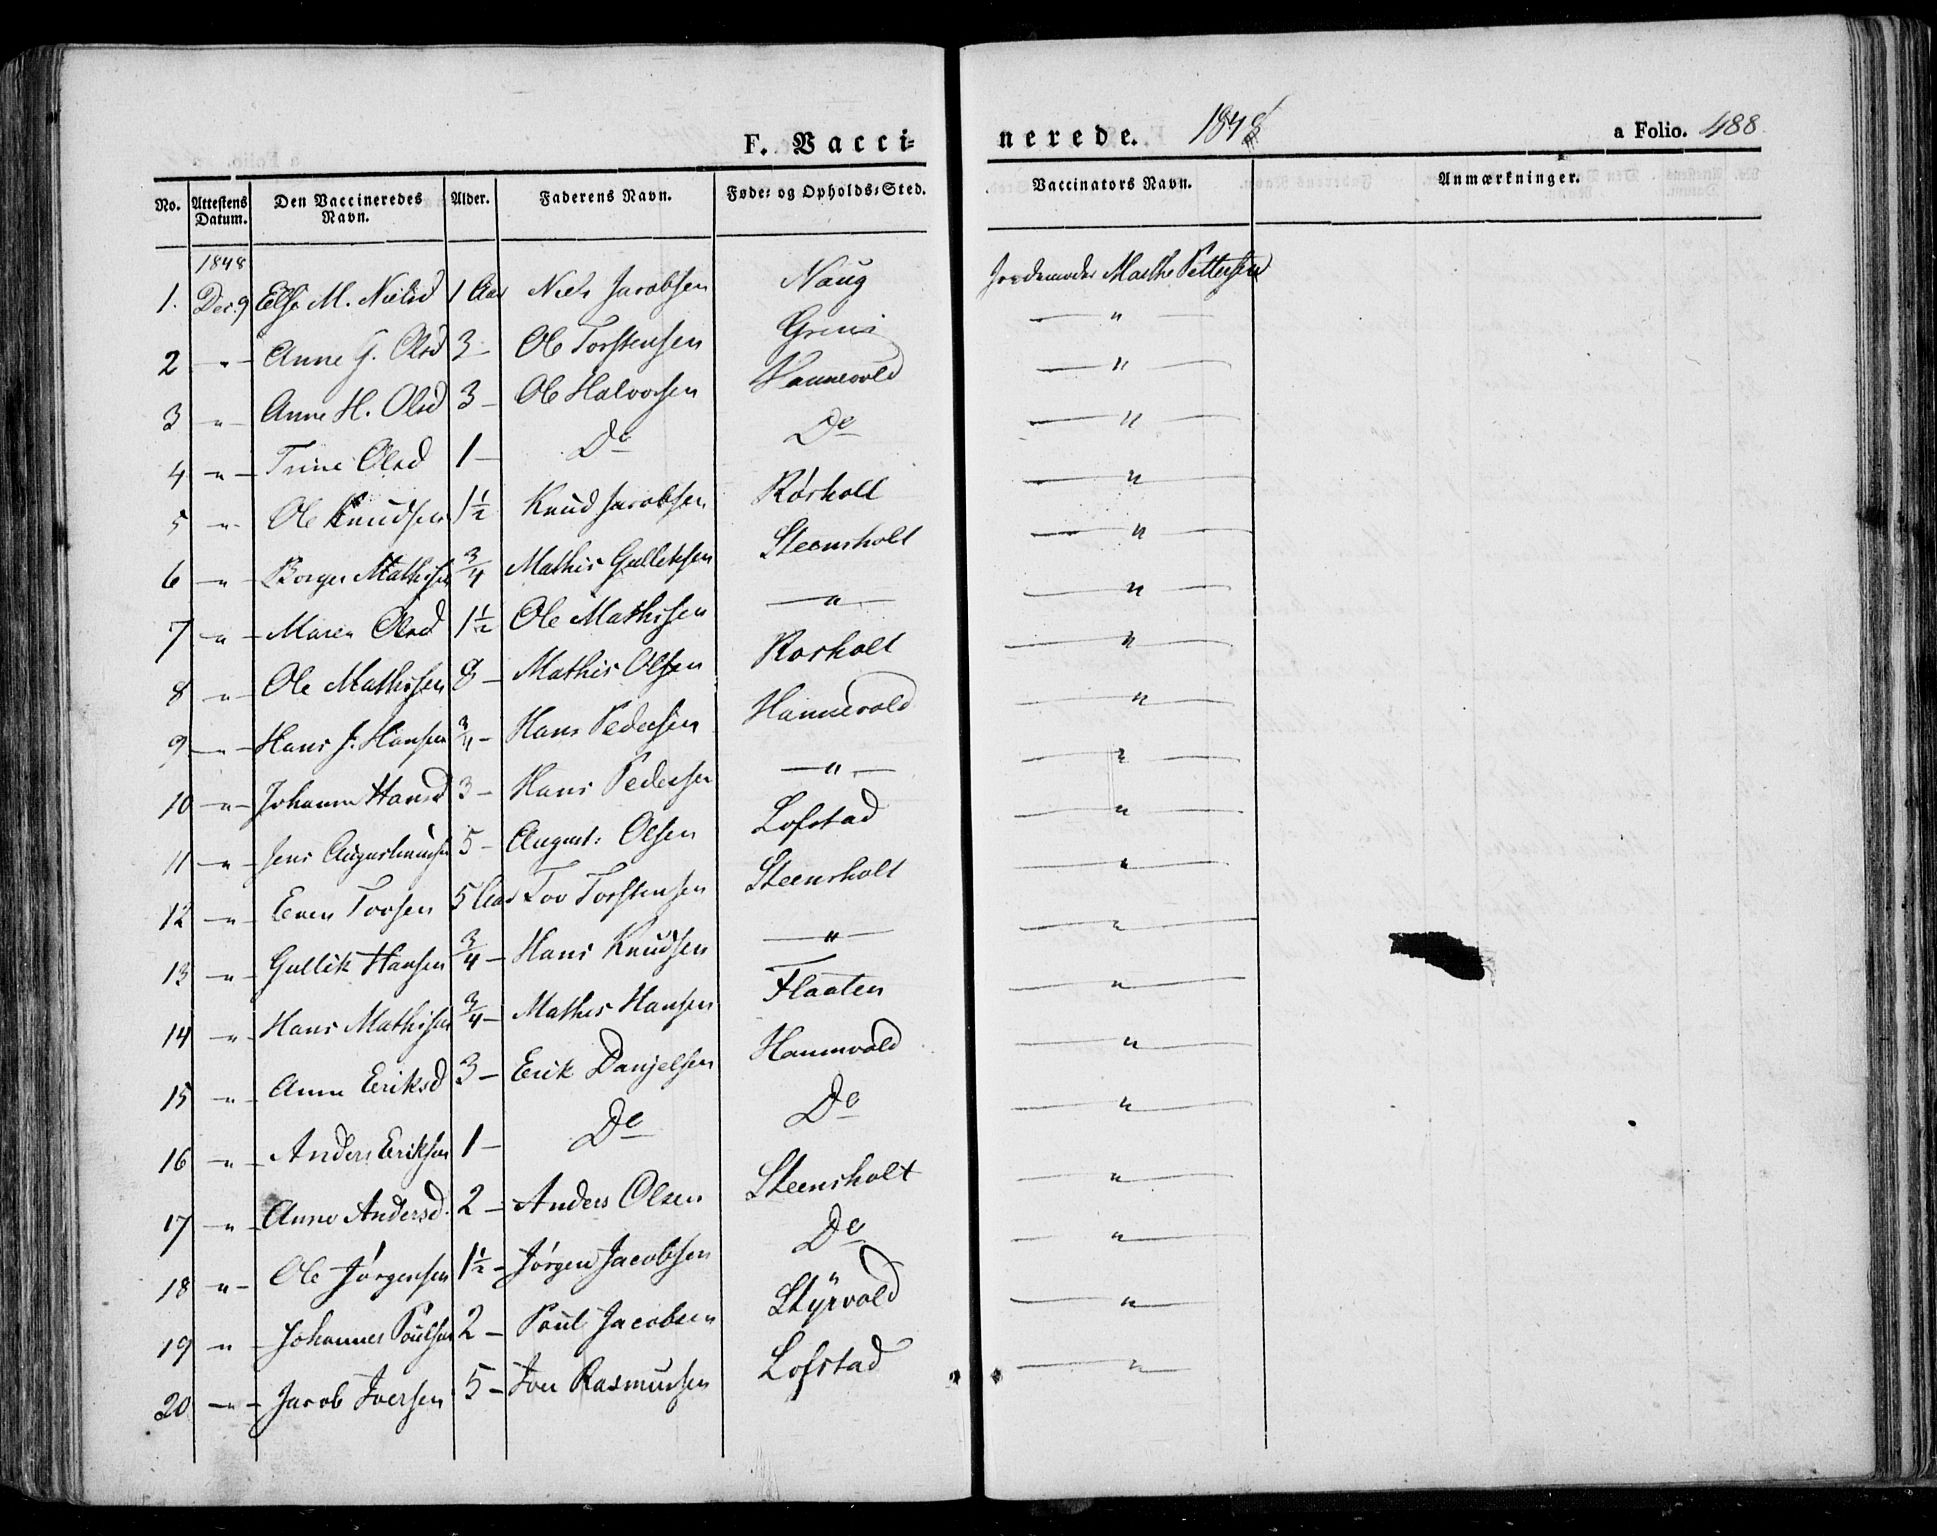 F. Vaccinerede. 1848 a Folio. 488
No. | Attestens Datum. | Den Vaccineredes Navn. | Alder. | Faderens Navn. | Føde- og Opholds-Sted. | Vaccinators Navn. | Anmærkninger.
1848
1. | Dec. 9 | Else M. Nielsd | 1 Aar | Niels Jacobsen | Naug | Jordemoder Marthe Pettersen
2 | " | Anne G. Olsd | 3 - | Ole Torstensen | | "
3 | " | Anne H. Olsd | 3 - | Ole Halvorsen | Hannevold | "
4 | " | Trine Olsd | 1 - | Do | Do | "
5 | " | Ole Knudsen | 1½ | Knud Jacobsen | Rörholt | "
6 | " | Borger Mathisen | ¾ | Mathis Gulleksen | Steensholt | "
7 | " | Maren Olsd | 1½ | Ole Mathisen | " | "
8 | " | Ole Mathisen | 8 - | Mathis Olsen | Rorholt | "
9 | " | Hans J. Hansen | ¾ - | Hans Pedersen | Hannevold | "
10 | " | Johanne Hansd | 3 - | Hans Pedersen | " | "
11 | " | Jens Augustinusen | 5 - | August: Olsen | Lofstad | "
12 | " | Even Tovsen | 5 Aar | Tov Torstensen | Steensholt | "
13 | " | Gullik Hansen | ¾ - | Hans Knudsen | " | "
14 | " | Hans Mathisen | ¾ - | Mathis Hansen | Flaaten | "
15 | " | Anne Eriksd | 3 - | Erik Danjelsen | Hannevold | "
16 | " | Anders Eriksen | 1 - | Do | Do | "
17 | " | Anne Andersd. | 2 - | Anders Olsen | Steensholt | "
18 | " | Ole Jørgensen | 1½ - | Jørgen Jacobsen | Do | "
19 | " | Johannes Poulsen | 2 - | Poul Jacobsen | Styrvold | "
20 | " | Jacob Iversen | 5 - | Iver Rasmussen | Lofstad | "